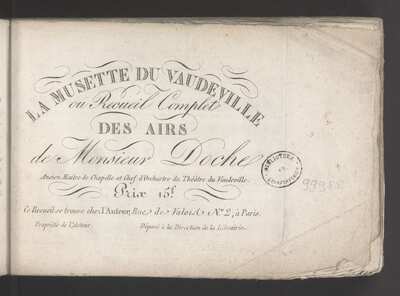 LA MUSETTE DU VAUDEVILLE
ou Recueil Complet
DES AIRS
de Monsieur Doche
Ancien Maitre de Chapelle et Chef d'Orchestre du Théâtre du Vaudeville.
Prix 15f.
Ce Recueil se trouve chez l'Auteur, Rue de Valois Nº 2, à Paris.
Propriété de l'Auteur. Déposé à la Direction de la Librairie.